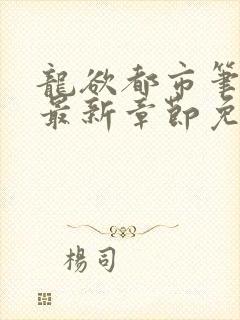 龍欲都市筆
最新章節免
楊司